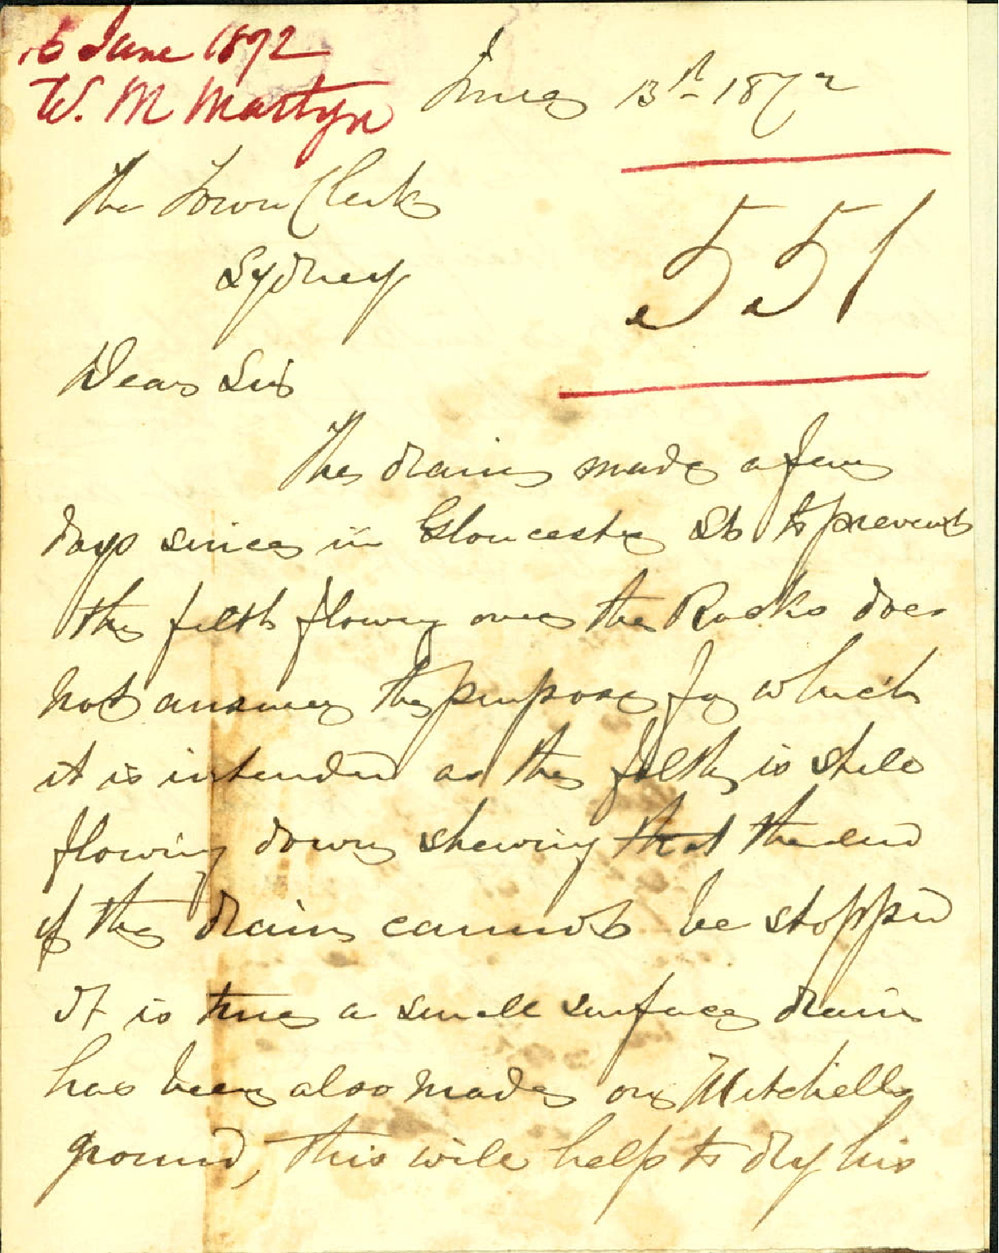 6 June 1872
W. M Martyn
June 13th 1872
The Town Clerk
Sydney
551
Dear Sir
The drain made a few
days since in Gloucester St to prevent
the filth flowing over the Rocks does
not answer the purpose for which
it is intended as the filth is still
flowing down shewing that the end
of the drain cannot be stopped
It is true a small surface drain
has been also made on Mitchells
ground, this will help to dry his